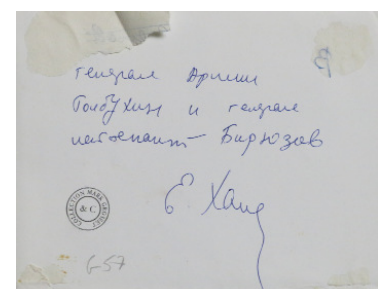 генерал Армии
Толбухин и генерал
лейтенант Бирюзов
Е. Халд
COLLECTION MARK GROSSET
& C